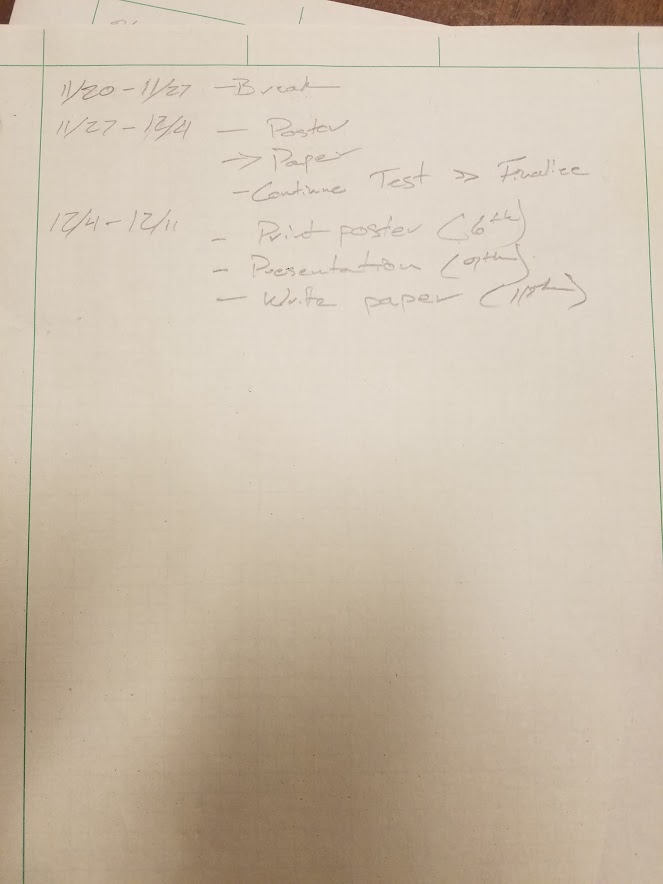 11/20 - 11/27 - Break
11/27 - 12/4 - Poster
-> Paper
- Continue Test >> Finalize
12/4 - 12/11 - Print poster (6th)
- Presentation (9th)
- Write paper (11th)